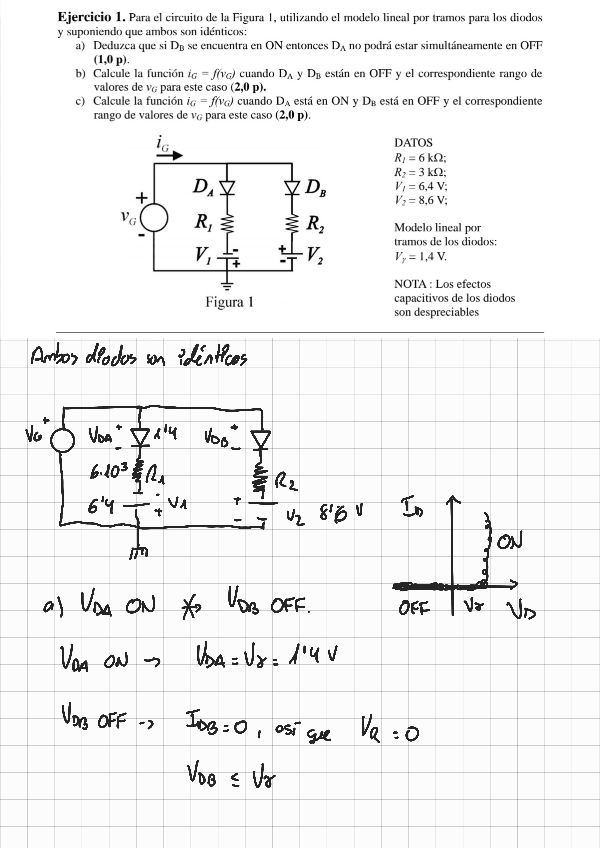 Ejercicio 1. Para el circuito de la Figura 1, utilizando el modelo lineal por tramos para los diodos
y suponiendo que ambos son idénticos:
a) Deduzca que si D_B se encuentra en ON entonces D_A no podrá estar simultáneamente en OFF
(1,0 p).
b) Calcule la función i_G = f(v_G) cuando D_A y D_B están en OFF y el correspondiente rango de
valores de v_G para este caso (2,0 p).
c) Calcule la función i_G = f(v_G) cuando D_A está en ON y D_B está en OFF y el correspondiente
rango de valores de v_G para este caso (2,0 p).
i_G
+
v_G
-
D_A
R_1
V_1
-
+
D_B
R_2
+
-
V_2
Figura 1
DATOS
R_1 = 6 kΩ;
R_2 = 3 kΩ;
V_1 = 6,4 V;
V_2 = 8,6 V;
Modelo lineal por
tramos de los diodos:
V_γ = 1,4 V.
NOTA : Los efectos
capacitivos de los diodos
son despreciables
Ambos diodos son idénticos
VG +
VDA + - 1'4
VDB + -
6·10³ R1
R2
6'4 - + V1
+ - V2 8'6 V
ID
ON
OFF Vγ VD
a) VDA ON ⇏ VDB OFF.
VDA ON → VDA = Vγ = 1'4 V
VDB OFF → IDB = 0, así que VR = 0
VDB ≤ Vγ